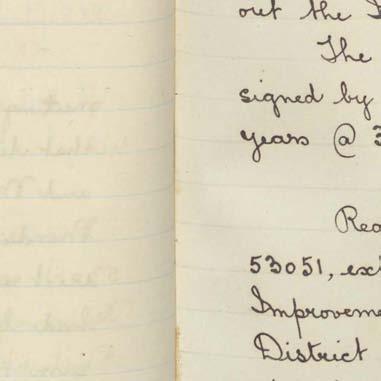 out the
The
signed by
years @ 3
Rea
53051, ex
Improveme
District